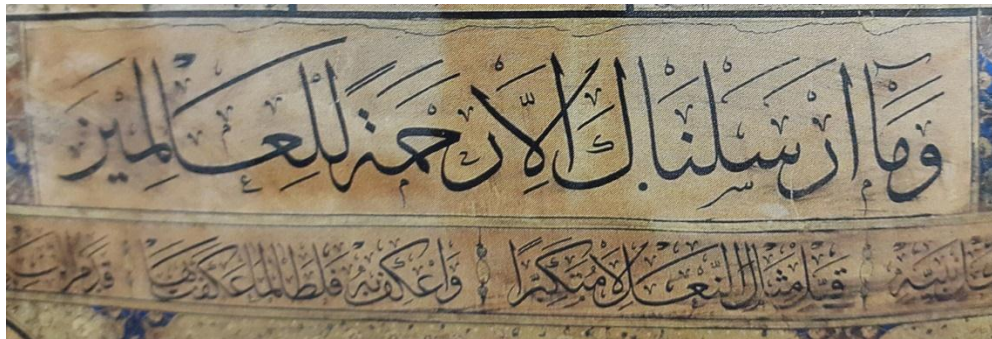 وَمَآ اَرْسَلْنَاكَ اِلَّا رَحْمَةً لِلْعَالَمِينَ
قَبِّلْ مِثَالَ النَّعْلِ لَا مُتَكَبِّرًا وَاعْكِفْ بِهِ فَلَطَالَمَا عَكَفَتْ بِهَا قَدَمُ